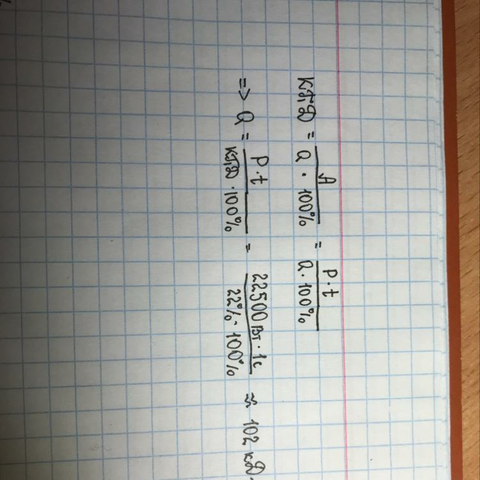 КПД = A / Q · 100% = P·t / Q·100%
=> Q = P·t / КПД·100% = 22500 Вт · 1с / 22%·100% ≈ 102 кД